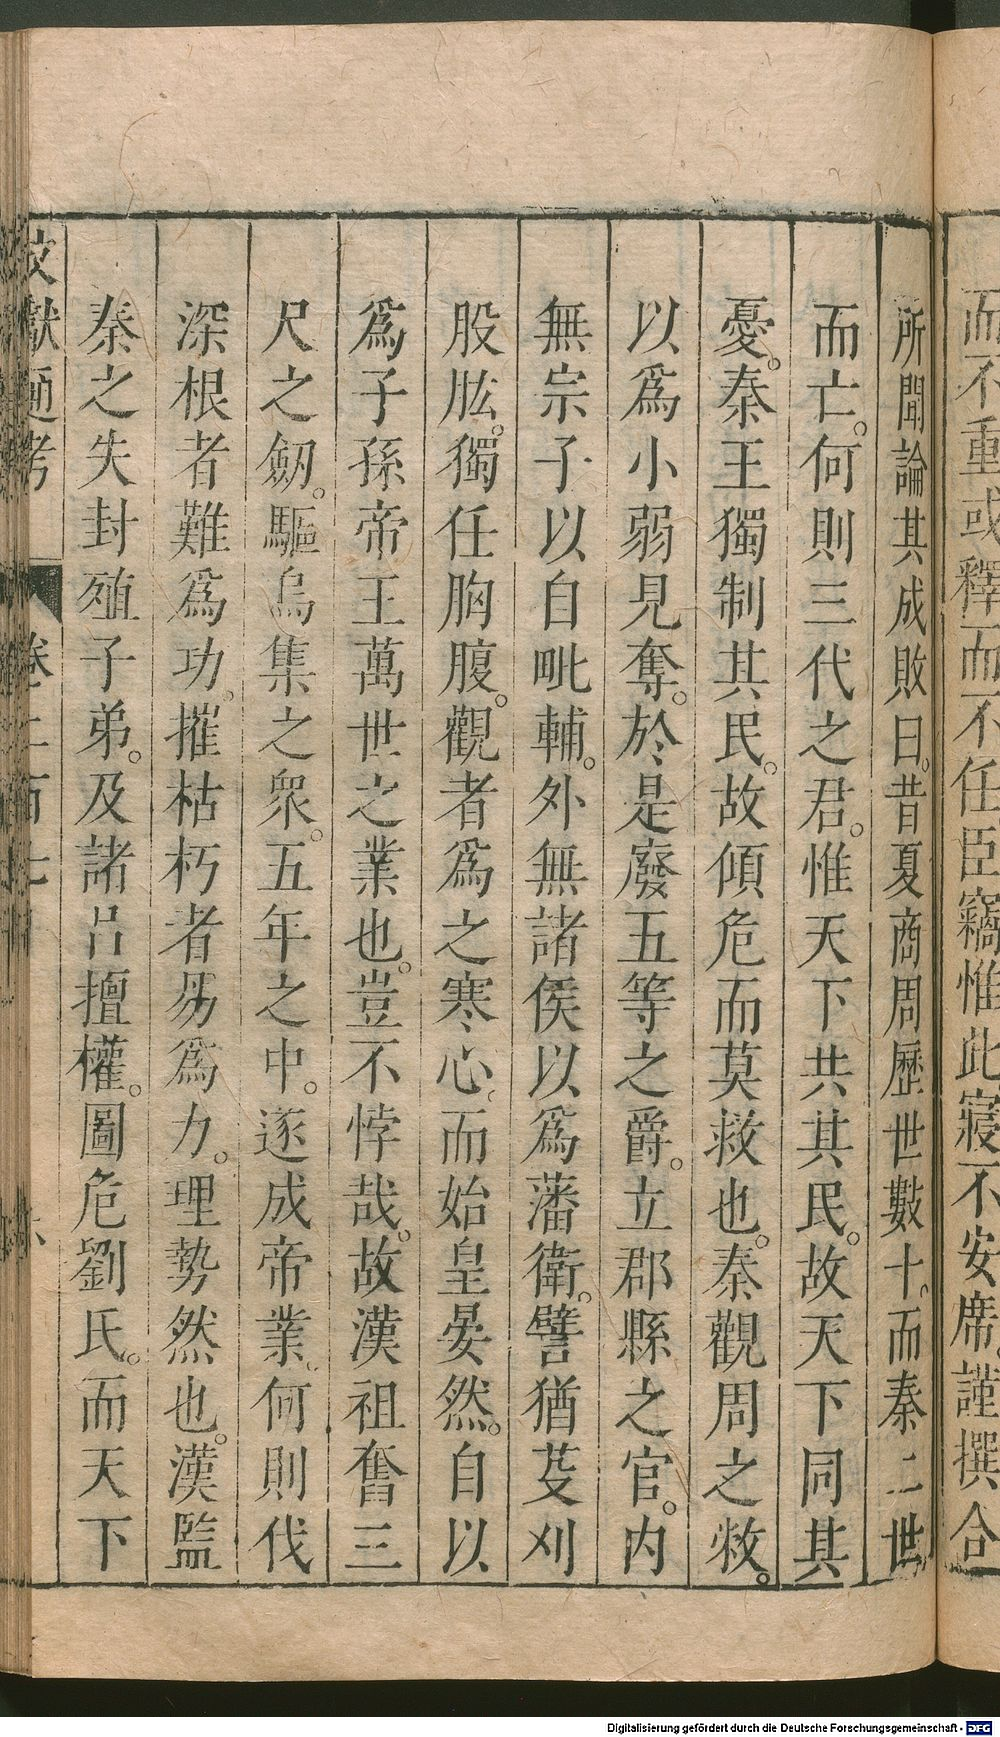 而不重或釋而不任臣竊惟此寢不安席。謹撰合
所聞論其成敗曰。昔夏商周歷世數十。而秦二世
而亡。何則三代之君。惟天下共其民。故天下同其
憂。秦王獨制其民。故傾危而莫救也。秦觀周之敝。
以爲小弱見奪。於是廢五等之爵。立郡縣之官。内
無宗子以自毗輔。外無諸侯以爲藩衛。譬猶芟刈
股肱。獨任胸腹。觀者爲之寒心。而始皇晏然。自以
爲子孫帝王萬世之業也。豈不悖哉。故漢祖奮三
尺之劒。驅烏集之衆。五年之中。遂成帝業。何則伐
深根者難爲功。摧枯朽者易爲力。理勢然也。漢監
秦之失封殖子弟。及諸呂擅權。圖危劉氏。而天下
文獻通考 卷二百七 六
Digitalisierung gefördert durch die Deutsche Forschungsgemeinschaft - DFG